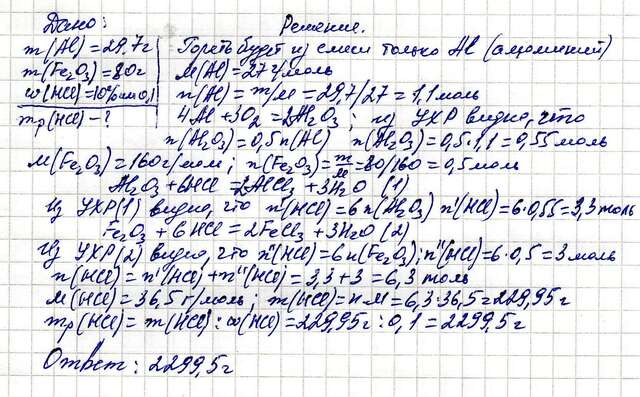 Дано: Решение.
m(Al)=29,7г Гореть будет из смеси только Al (алюминий)
m(Fe₂O₃)=80г M(Al)=27г/моль
ω(HCl)=10% или 0,1 n(Al)=m/M=29,7/27=1,1моль
mр(HCl)-? 4Al+3O₂=2Al₂O₃; из УХР видно, что
n(Al₂O₃)=0,5n(Al) n(Al₂O₃)=0,5·1,1=0,55моль
M(Fe₂O₃)=160г/моль; n(Fe₂O₃)=m/M=80/160=0,5моль
Al₂O₃+6HCl=2AlCl₃+3H₂O (1)
Из УХР(1) видно, что n'(HCl)=6n(Al₂O₃) n'(HCl)=6·0,55=3,3моль
Fe₂O₃+6HCl=2FeCl₃+3H₂O (2)
Из УХР(2) видно, что n"(HCl)=6n(Fe₂O₃); n"(HCl)=6·0,5=3моль
n(HCl)=n'(HCl)+n"(HCl)=3,3+3=6,3моль
M(HCl)=36,5г/моль; m(HCl)=n·M=6,3·36,5=229,95г
mр(HCl)=m(HCl):ω(HCl)=229,95г:0,1=2299,5г
Ответ: 2299,5г